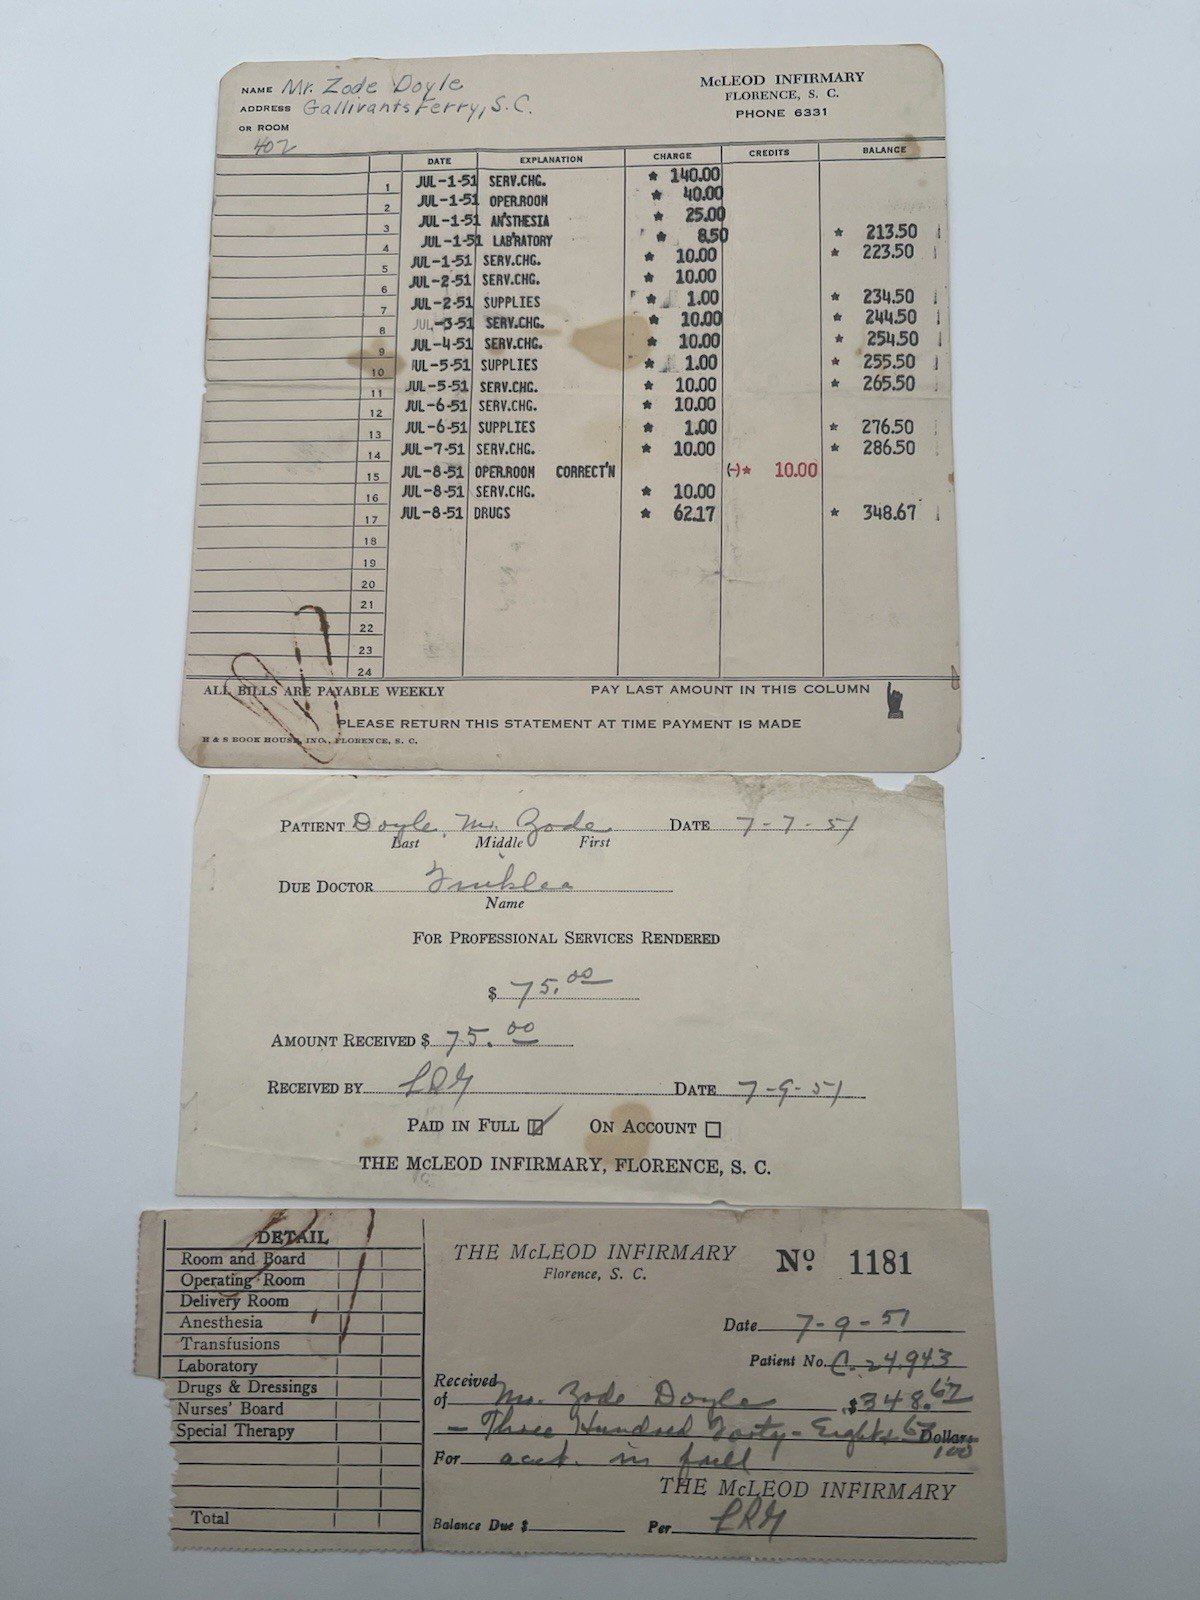 NAME Mr. Zode Doyle
ADDRESS Gallivants Ferry, S.C.
OR ROOM
402
McLEOD INFIRMARY
FLORENCE, S. C.
PHONE 6331
DATE EXPLANATION CHARGE CREDITS BALANCE
1 JUL-1-51 SERV.CHG. * 140.00
2 JUL-1-51 OPER.ROOM * 40.00
3 JUL-1-51 AN'STHESIA * 25.00
4 JUL-1-51 LAB'RATORY * 8.50 * 213.50
5 JUL-1-51 SERV.CHG. * 10.00 * 223.50
6 JUL-2-51 SERV.CHG. * 10.00
7 JUL-2-51 SUPPLIES * 1.00 * 234.50
8 JUL-3-51 SERV.CHG. * 10.00 * 244.50
9 JUL-4-51 SERV.CHG. * 10.00 * 254.50
10 JUL-5-51 SUPPLIES * 1.00 * 255.50
11 JUL-5-51 SERV.CHG. * 10.00 * 265.50
12 JUL-6-51 SERV.CHG. * 10.00
13 JUL-6-51 SUPPLIES * 1.00 * 276.50
14 JUL-7-51 SERV.CHG. * 10.00 * 286.50
15 JUL-8-51 OPER.ROOM CORRECT'N (-)* 10.00
16 JUL-8-51 SERV.CHG. * 10.00
17 JUL-8-51 DRUGS * 62.17 * 348.67
18
19
20
21
22
23
24
ALL BILLS ARE PAYABLE WEEKLY PAY LAST AMOUNT IN THIS COLUMN
PLEASE RETURN THIS STATEMENT AT TIME PAYMENT IS MADE
H & S BOOK HOUSE, INC., FLORENCE, S. C.
PATIENT Doyle, Mr. Zode DATE 7-7-51
Last Middle First
DUE DOCTOR
Name
FOR PROFESSIONAL SERVICES RENDERED
$ 75.00
AMOUNT RECEIVED $ 75.00
RECEIVED BY DATE 7-9-51
PAID IN FULL ON ACCOUNT
THE McLEOD INFIRMARY, FLORENCE, S. C.
DETAIL
Room and Board
Operating Room
Delivery Room
Anesthesia
Transfusions
Laboratory
Drugs & Dressings
Nurses' Board
Special Therapy
Total
THE McLEOD INFIRMARY No. 1181
Florence, S. C.
Date 7-9-51
Patient No. C-24943
Received
of Mr. Zode Doyle $348.67
— Three Hundred Forty-Eight & 67/100 Dollars
For acct. in full
THE McLEOD INFIRMARY
Balance Due $ Per